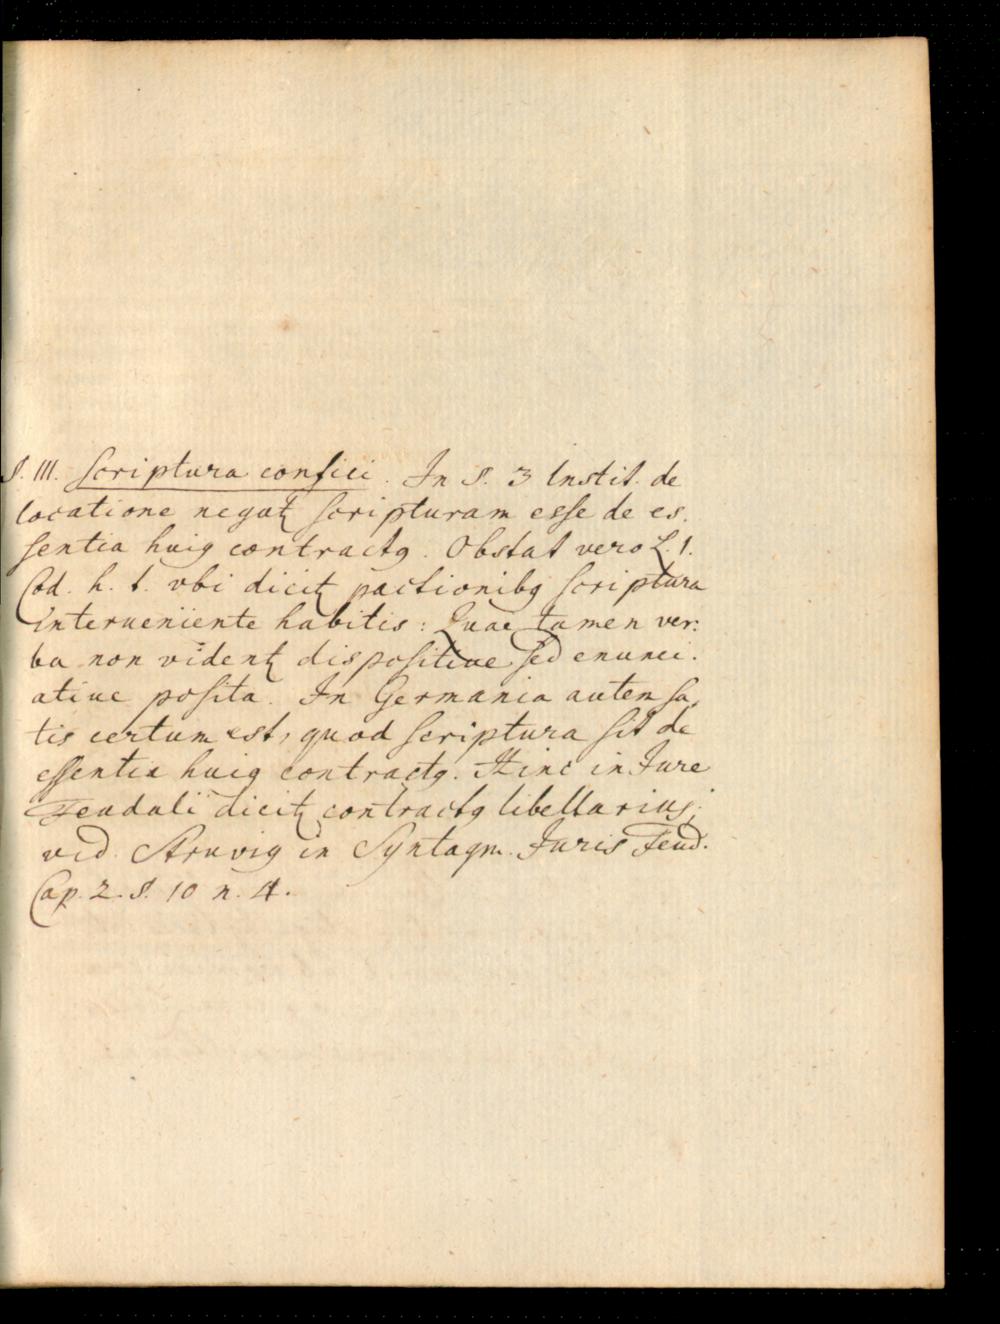 §. III. Scriptura confici. In §. 3 Instit. de
locatione negatꝛ scripturam esse de es.
sentia huiꝰ contractꝰ. Obstat vero L. 1.
Cod. h. t. vbi dicitꝛ pactionibꝰ scriptura
interueniente habitis: Quae tamen ver:
ba non videntꝛ dispositiue sed enunci.
atiue posita. In Germania autem sa,
tis certum est, quod scriptura sit de
essentia huiꝰ contractꝰ. Hinc in Jure
Feudali dicitꝛ contractꝰ libellarius;
vid. Struviꝰ in Syntagm. Juris Feud.
Cap. 2. §. 10 n. 4.